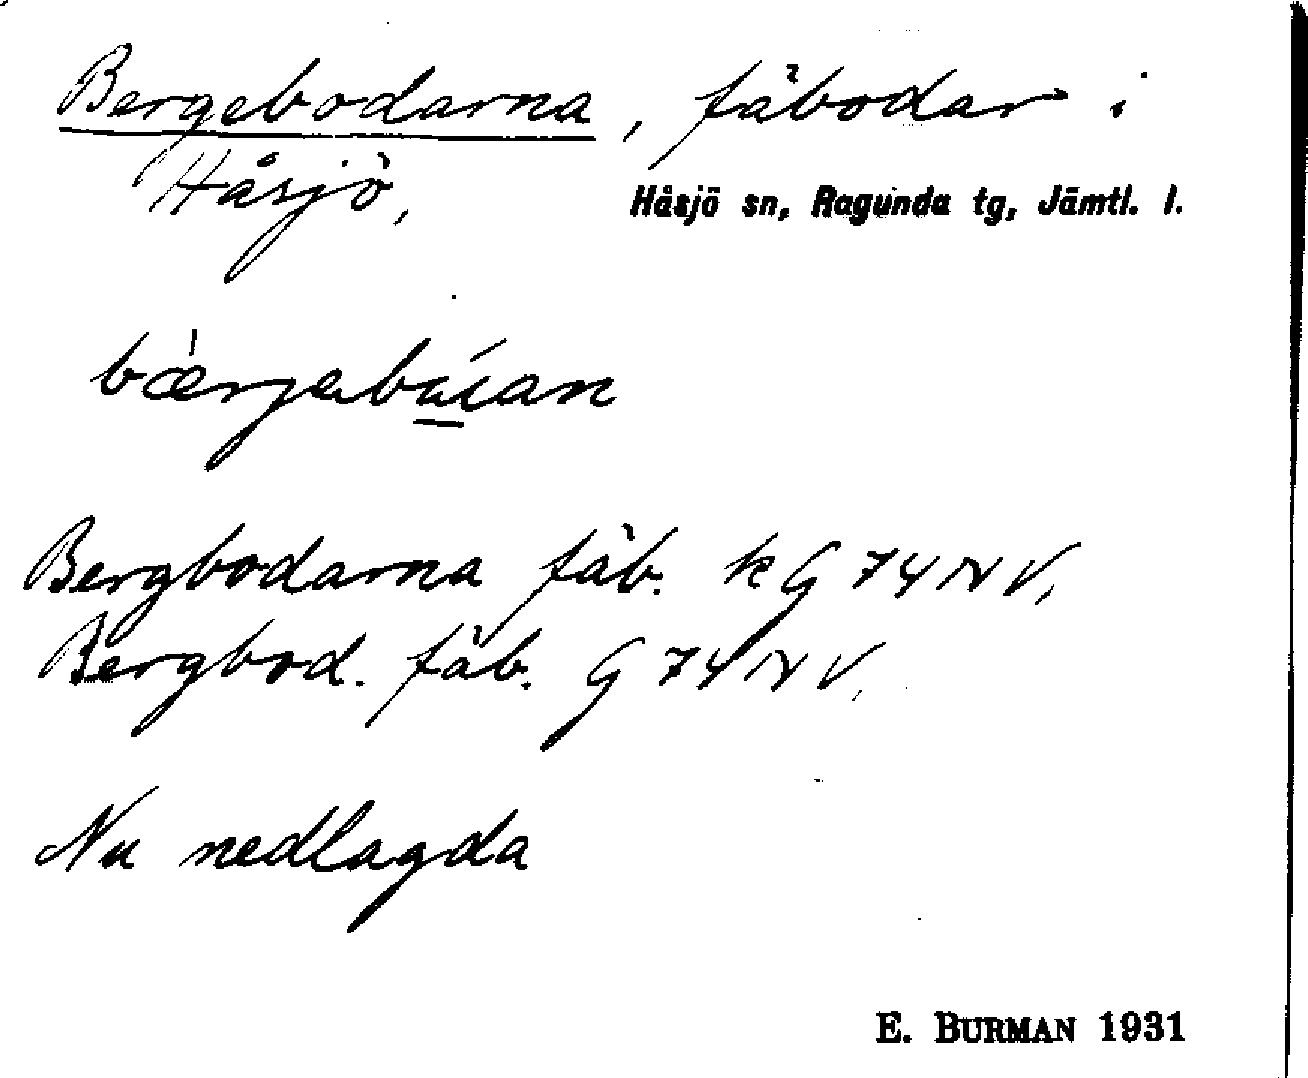 Bergebodarna, fäbodar i
Håsjö, Håsjö sn, Ragunda tg, Jämtl. l.
Bergbodarna fäb. kG 74 NV,
Bergbod. fäb. G 74 NV,
Nu nedlagda
E. BURMAN 1931